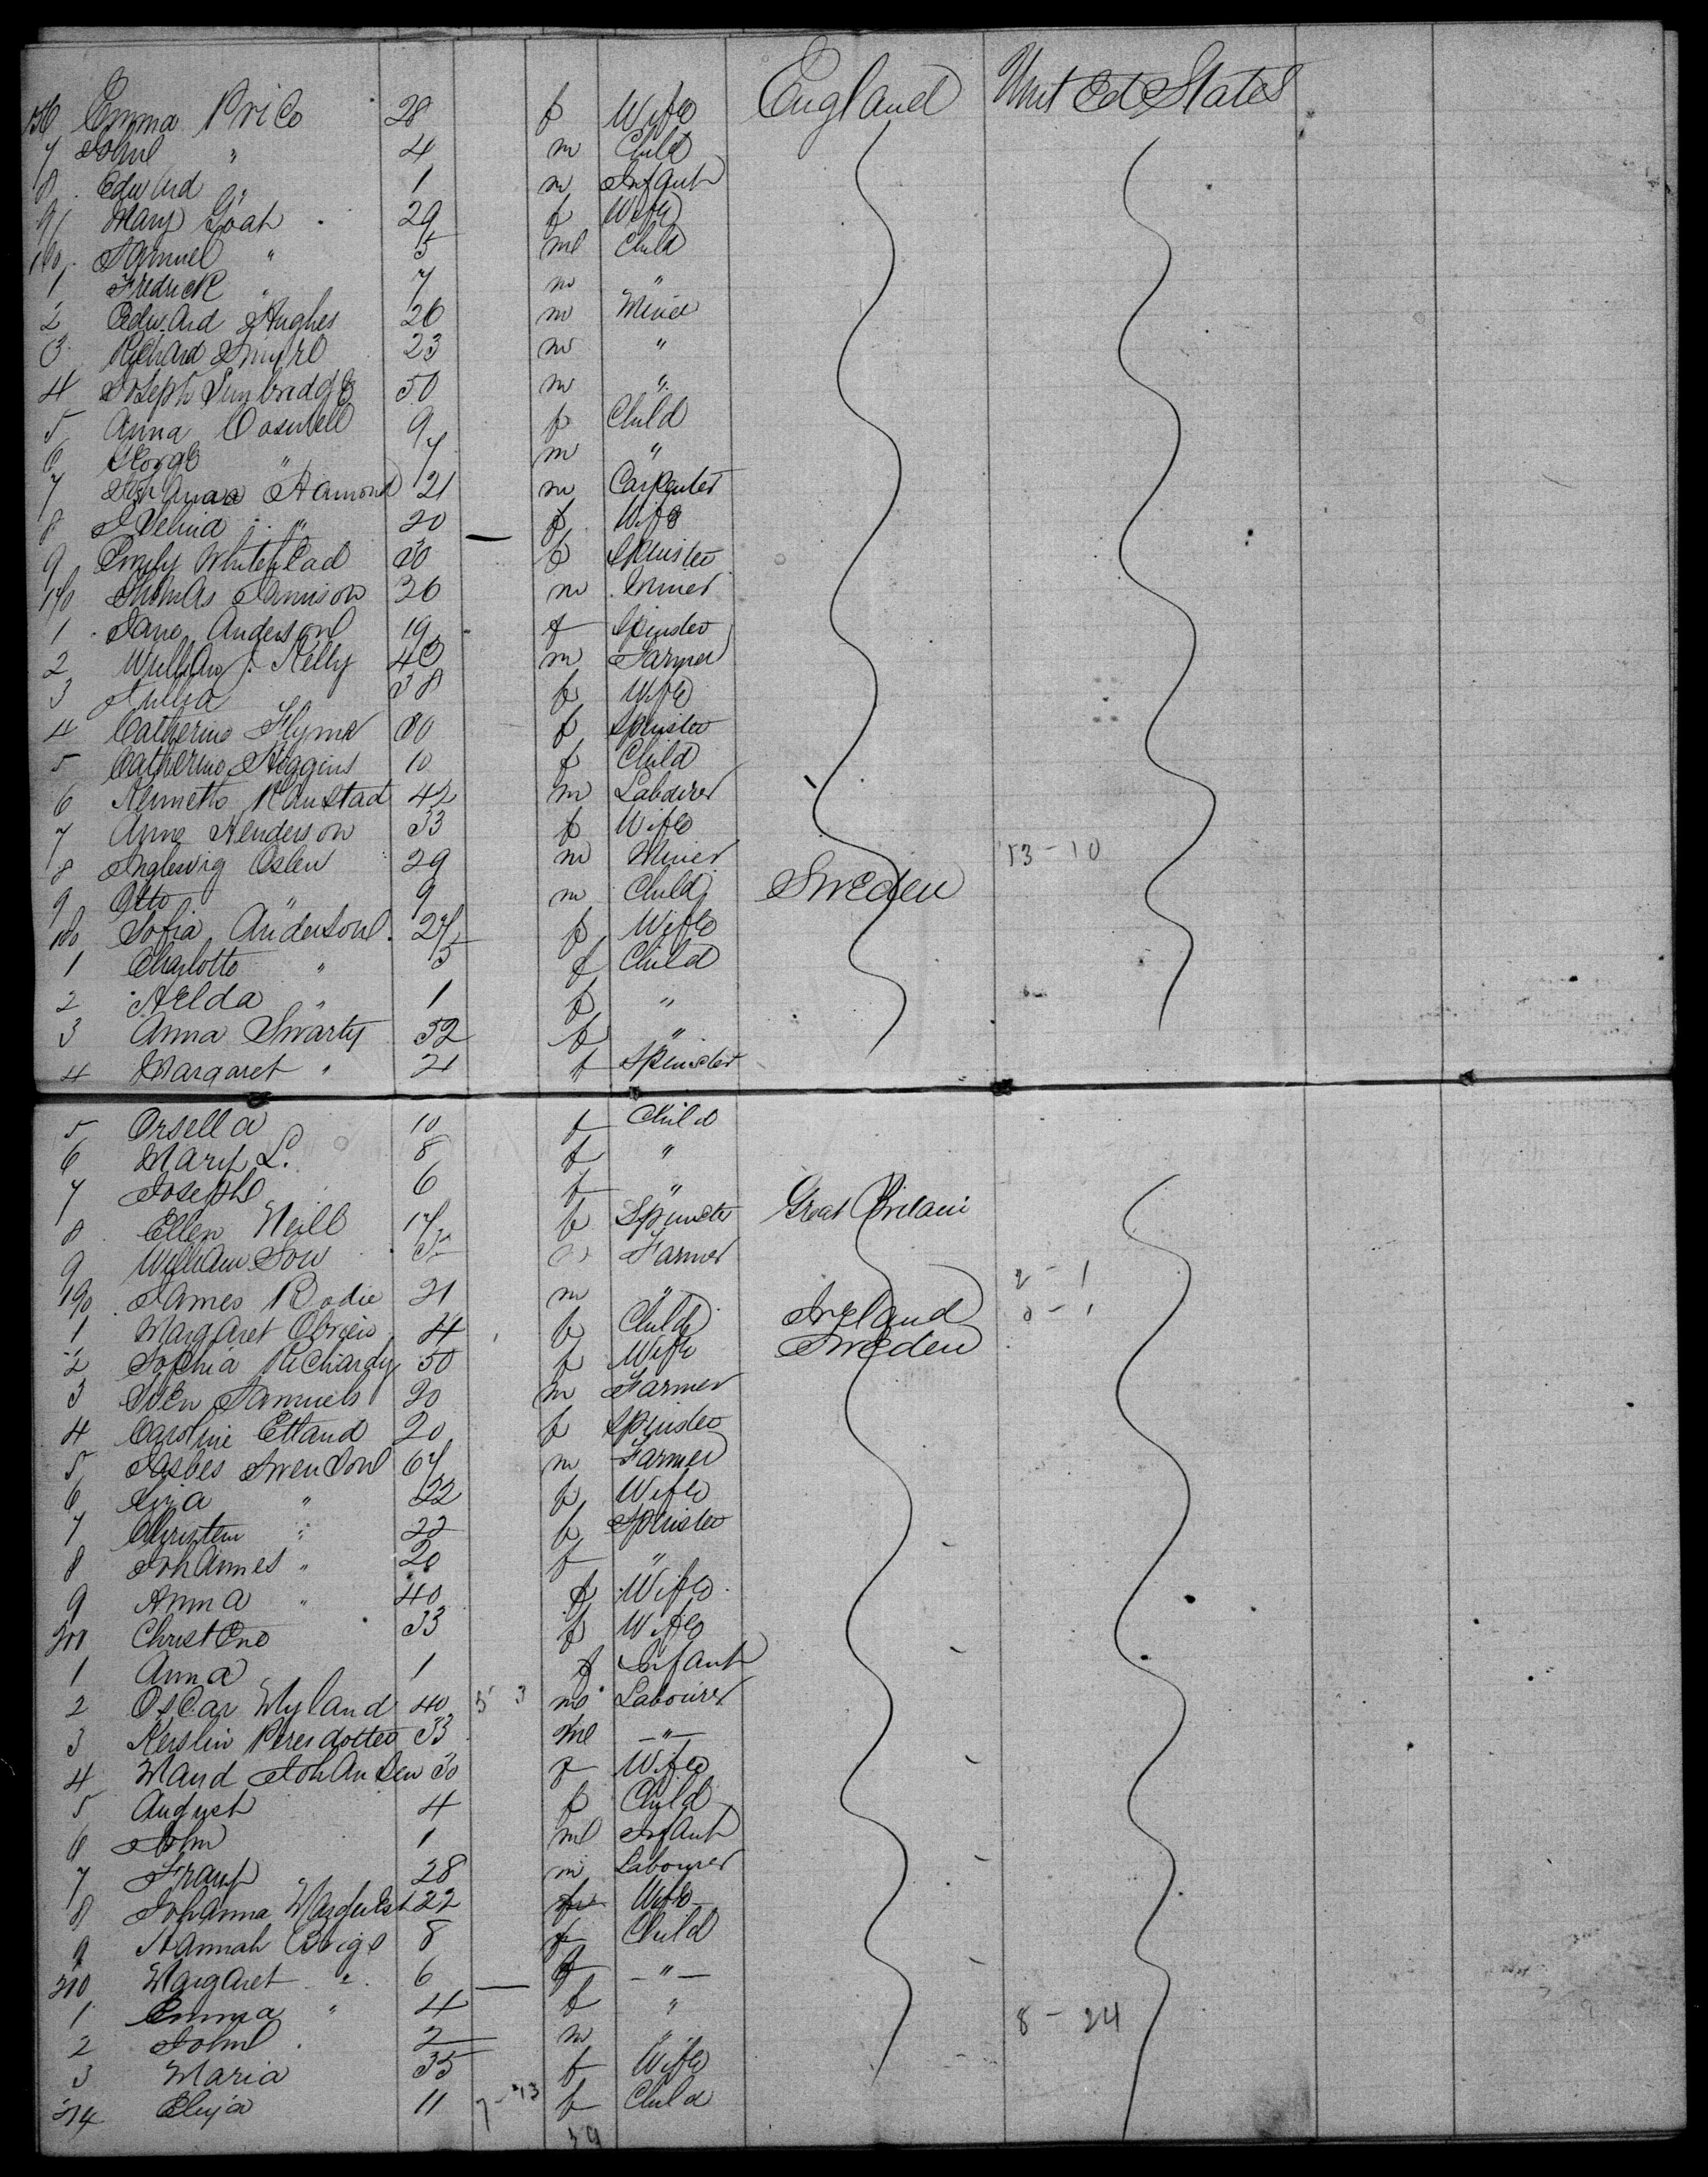 156 Emma Price 28 f Wife England United States
7 John " 4 m Child
8 Edward " 1 m Infant
9 Mary Goah 29 f Wife
160 Samuel " 5 ml Child
1 Fredrick " 7 m "
2 Edward Hughes 26 m Miner
3 Richard 23 m "
4 Joseph 50 m "
5 Anna Coswell 9 f Child
6 George " 7 m "
7 Hamond 21 m Carpenter
8 " 20 f Wife
9 Emily Whitehead 30 f Spinster
170 Thomas Jamison 36 m
1 Jane Anderson 19 f Spinster
2 William J. Kelly 40 m Farmer
3 Julia 38 f Wife
4 Catherine 80 f Spinster
5 Catherine Higgins 10 f Child
6 Kenneth 42 m Labourer
7 Anne Henderson 33 f Wife
8 Oslen 29 m Miner 13-10
9 Otto " 9 m Child Sweden
180 Sofia Anderson 27 f Wife
1 Charlotte " 5 f Child
2 Helda " 1 f "
3 Anna Swarty 52 f "
4 Margaret " 21 f Spinster
5 Orsella 10 f Child
6 Mary L. 8 f "
7 Joseph 6 f "
8 Ellen Neill 17 f Spinster Great Britain
9 William Sow Farmer
190 James Rodie 21 m " 2-1
1 Margaret Obrien 4 f Child Ireland
2 Sophia Richardy 50 f Wife Sweden
3 Sven Samuels 20 m Farmer
4 Caroline Ettand 20 f Spinster
5 Swenson 67 m Farmer
6 " 22 f Wife
7 Christen " 22 f Spinster
8 Johannes " 20 f "
9 Anna " 40 f Wife
200 Christene 33 f Wife
1 Anna 1 f Infant
2 Oscar Wyland 40 5 3 m Labourer
3 Kerslin 33 ml "
4 Maud Johansen 30 f Wife
5 August 4 f Child
6 John 1 ml Infant
7 28 m Labourer
8 Johanna 22 f Wife
9 Hannah Brigs 8 f Child
210 Margaret " 6 f "
1 Emma " 4 f " 8-24
2 John 2 m "
3 Maria 35 f Wife
214 11 7-13 f Child